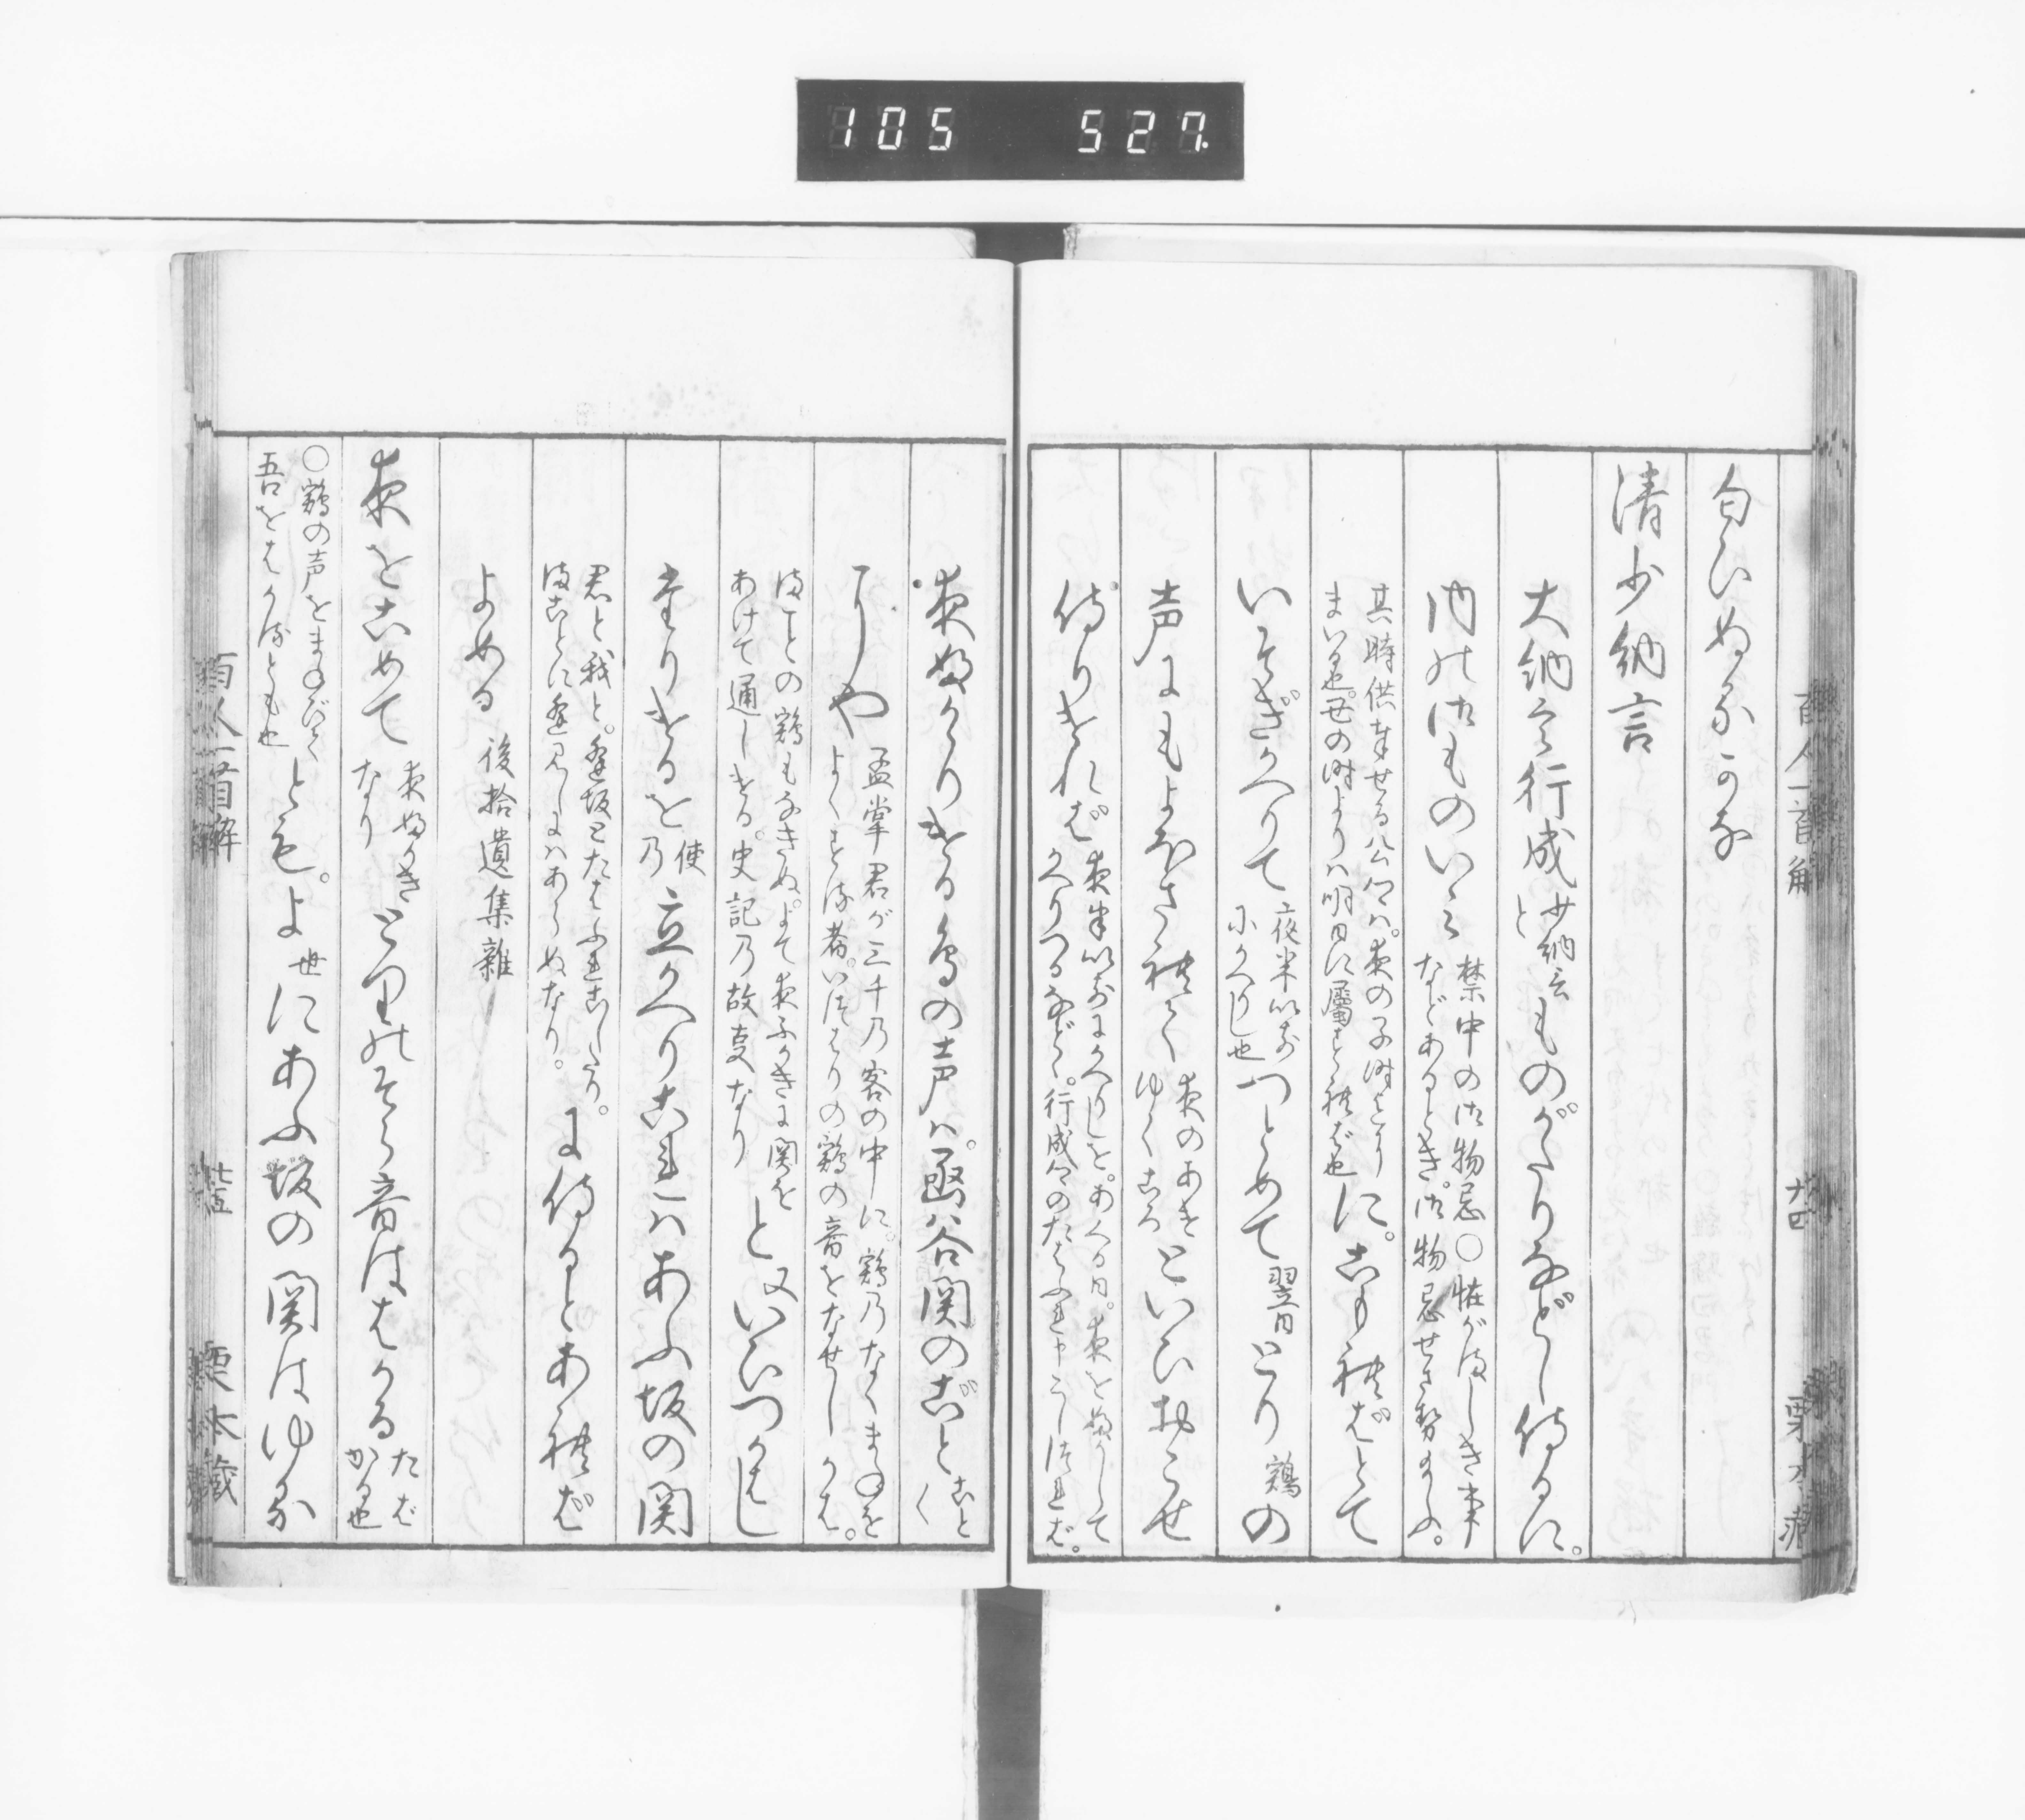 105 527
百人一首解
廿四
栗本蔵
匂ひぬるかな
清少納言
大納言行成少納言とものがたりなどし侍るに。
内の御ものいみ禁中の御物忌〇怪がましき事などあるとき。御物忌せさせ給ふ。
其時供奉せる公卿は。夜の子時よりまいる也。丑の時よりは明日に属すれば也に。こもればとて
いそぎかへりて夜半以前にかへりし也つとめて翌日とり鶏の
声にもよほされて夜のあけゆくころといひおこせ
侍りければ夜半以前にかへりしを。あくる日。夜を明かしてかへりつるなど。行成卿のたはふれ申こしければ。
夜ふかりける鳥の声は。函谷関のごとこと〱
にや孟嘗君が三千の客の中に。鶏のなくまねをよくする者。いつはりの鶏の音をなせしかば。
まことの鶏もなきぬ。よて夜ふかきに関をあけて通しける。史記の故事なりと又いひつかはし
たりけるを使の立かへりこれはあふ坂の関
君と我と。逢坂とたはふれこしたり。まことに逢見しにはあらぬなり。に侍るとあれば
よめる 後拾遺集雑
夜をこめて夜ふかきなりとりのそら音ははかるたばかる也
〇鶏の声をまねびて吾をはかるとも也とも。よ世にあふ坂の関はゆる
百人一首解
廿五
栗本蔵